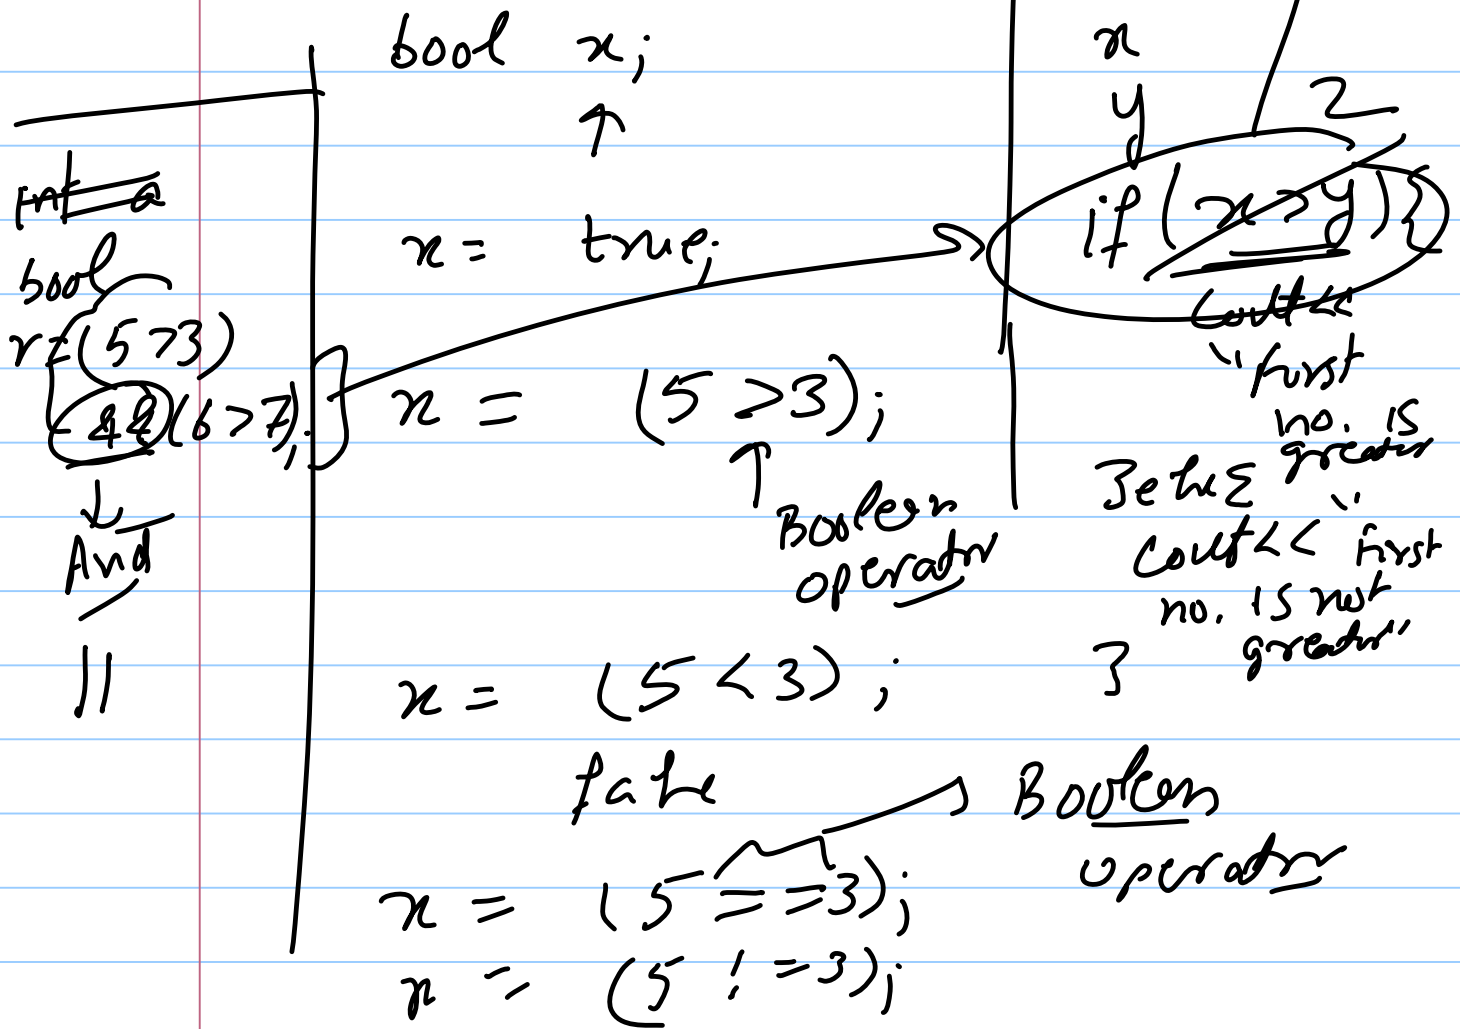 int a
bool
r=(5>3)
&&(6>7);
And
||
bool x;
x = true;
x = (5>3);
Boolean
operator
x = (5<3);
false
x = (5==3);
Boolean
operator
x = (5!=3);
x
y
2
if (x>y){
cout<<
"first
no. is
greater
"
}else{
cout<< "first
no. is not
greater"
}